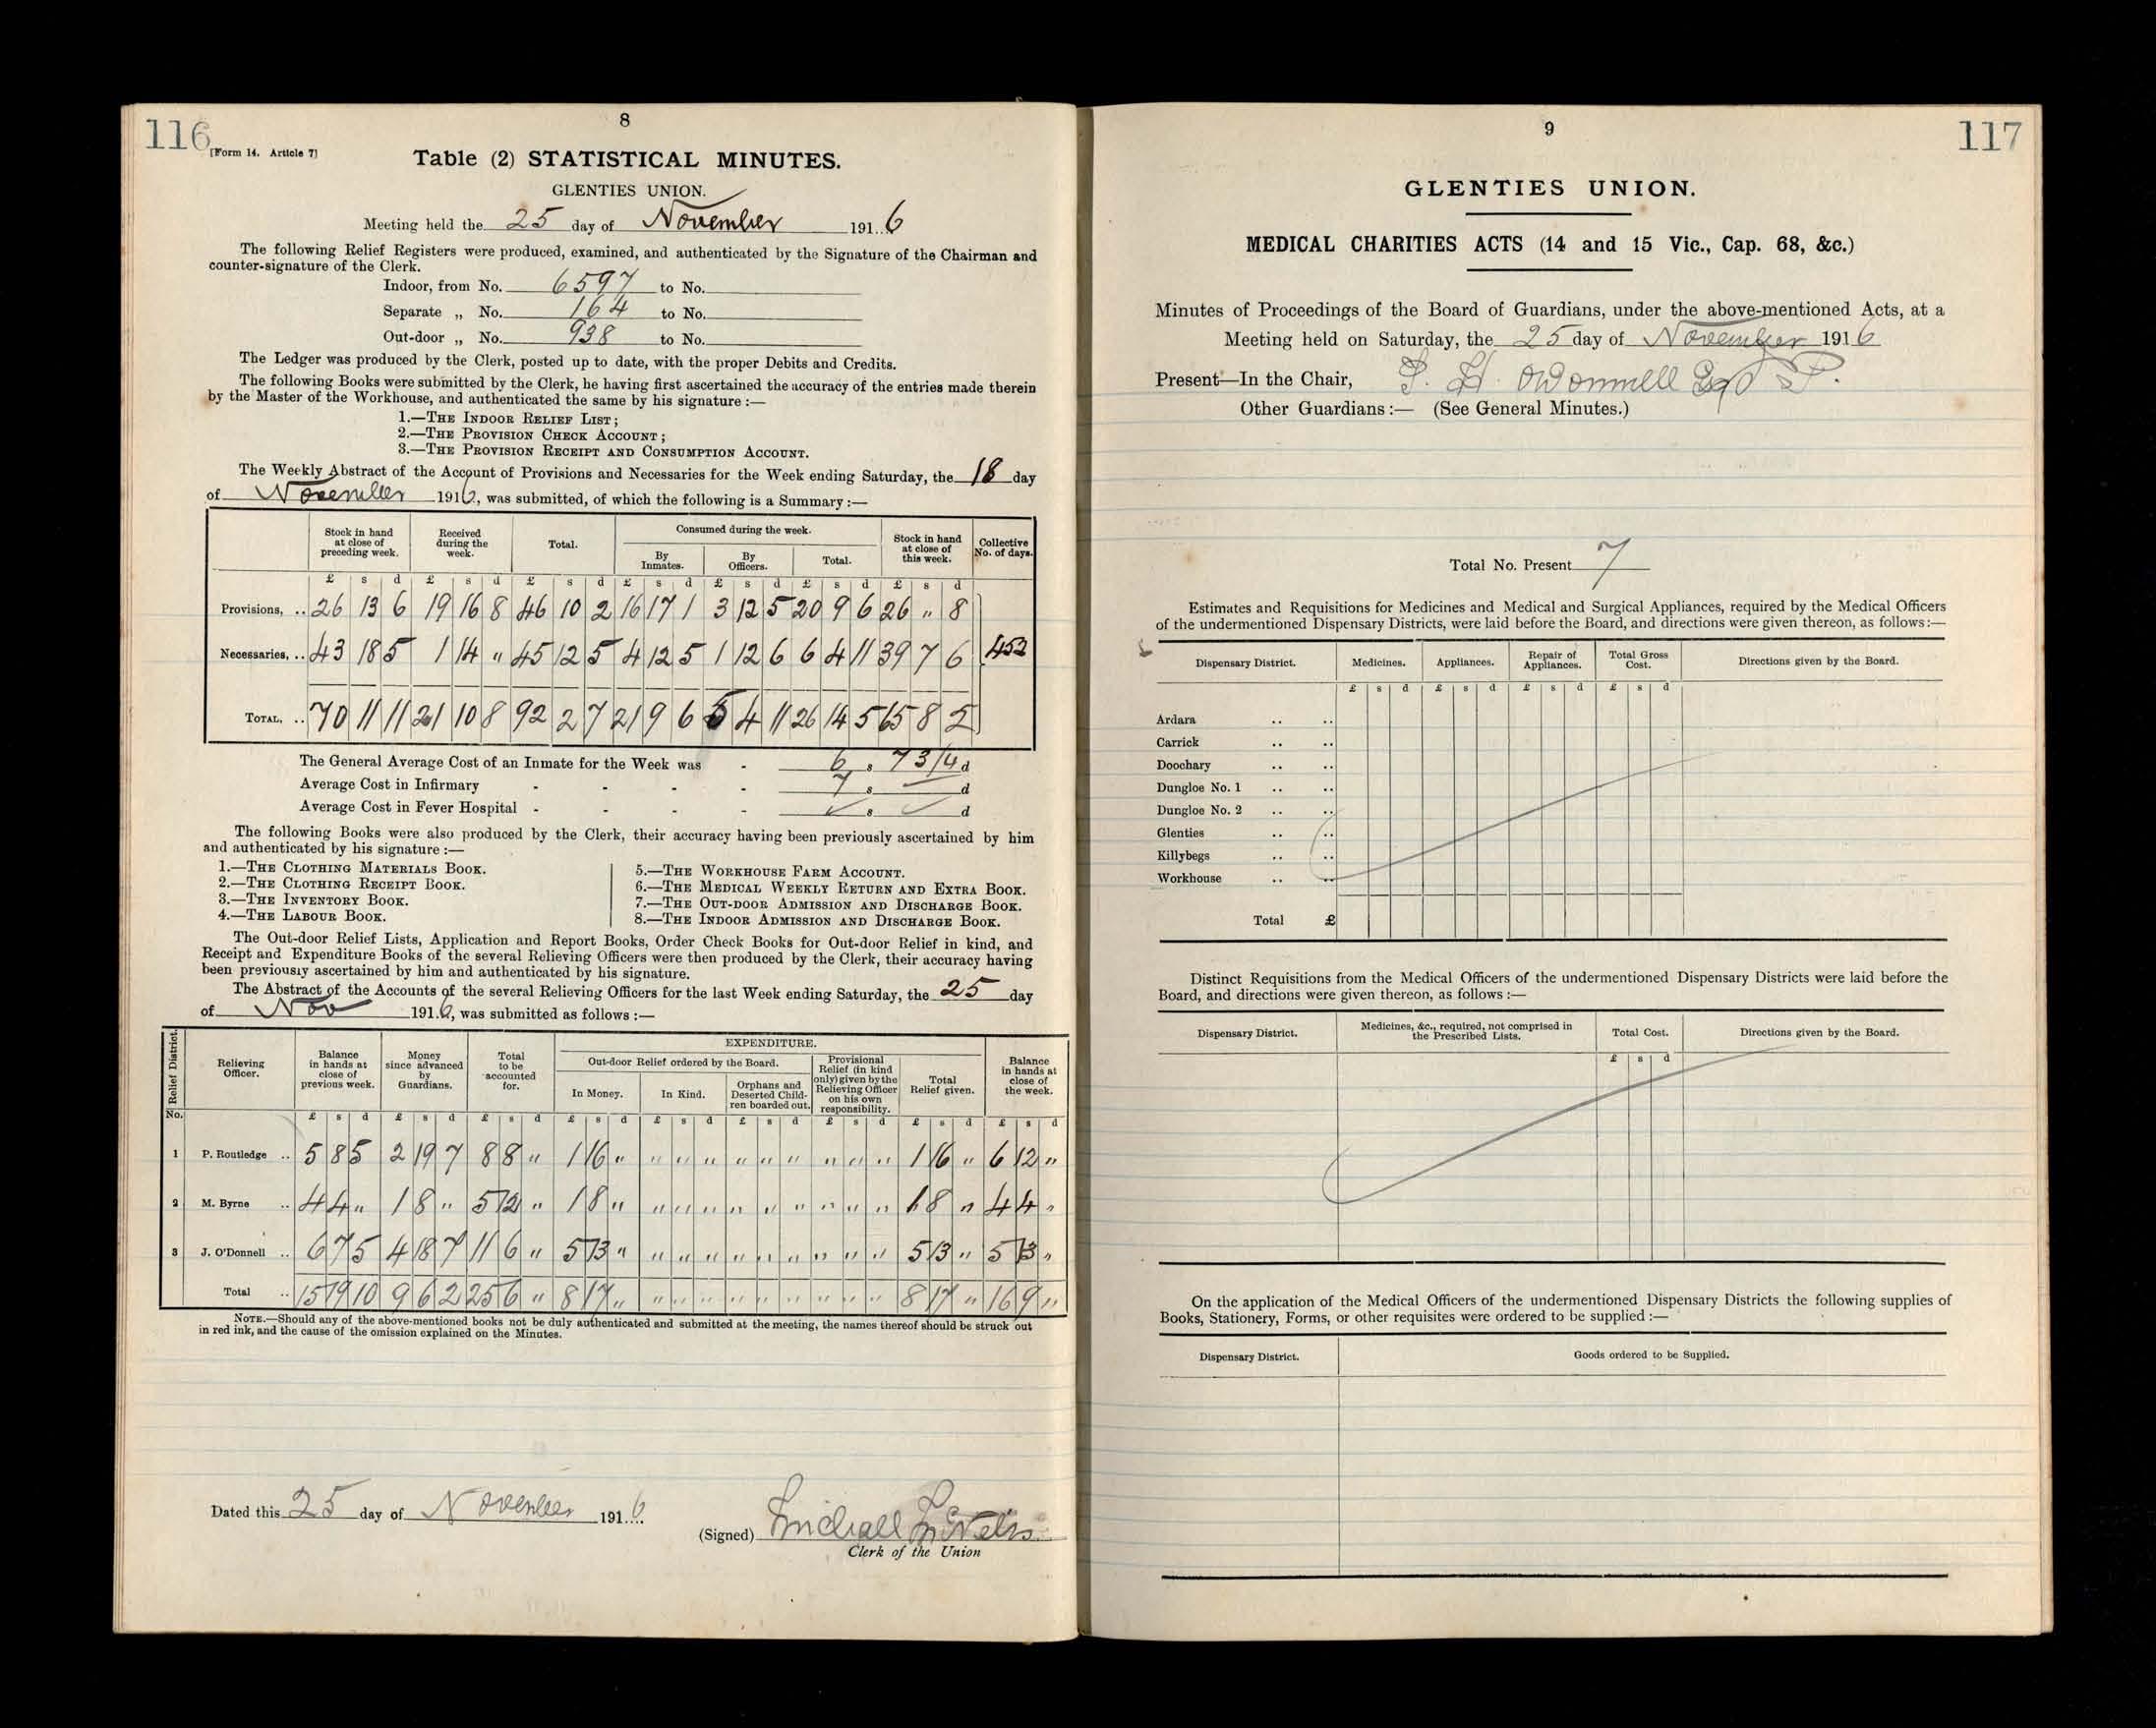 116
[Form 14. Article 7]
8
Table (2) STATISTICAL MINUTES.
GLENTIES UNION.
Meeting held the 25 day of November 1916
The following Relief Registers were produced, examined, and authenticated by the Signature of the Chairman and
counter-signature of the Clerk.
Indoor, from No. 6597 to No.
Separate „ No. 164 to No.
Out-door „ No. 938 to No.
The Ledger was produced by the Clerk, posted up to date, with the proper Debits and Credits.
The following Books were submitted by the Clerk, he having first ascertained the accuracy of the entries made therein
by the Master of the Workhouse, and authenticated the same by his signature :—
1.—THE INDOOR RELIEF LIST;
2.—THE PROVISION CHECK ACCOUNT;
3.—THE PROVISION RECEIPT AND CONSUMPTION ACCOUNT.
The Weekly Abstract of the Account of Provisions and Necessaries for the Week ending Saturday, the 18 day
of November 1916, was submitted, of which the following is a Summary :—
Stock in hand at close of preceding week. Received during the week. Total. Consumed during the week. Stock in hand at close of this week. Collective No. of days.
By Inmates. By Officers. Total.
£ s d £ s d £ s d £ s d £ s d £ s d £ s d
Provisions, .. 26 13 6 19 16 8 46 10 2 16 17 1 3 12 5 20 9 6 26 „ 8
Necessaries, .. 43 18 5 1 14 „ 45 12 5 4 12 5 1 12 6 6 4 11 39 7 6 453
TOTAL, .. 70 11 11 21 10 8 92 2 7 21 9 6 5 4 11 26 14 5 65 8 2
The General Average Cost of an Inmate for the Week was - 6 s 7 3/4 d
Average Cost in Infirmary - - - - 7 s — d
Average Cost in Fever Hospital - - - - s d
The following Books were also produced by the Clerk, their accuracy having been previously ascertained by him
and authenticated by his signature :—
1.—THE CLOTHING MATERIALS BOOK.
2.—THE CLOTHING RECEIPT BOOK.
3.—THE INVENTORY BOOK.
4.—THE LABOUR BOOK.
5.—THE WORKHOUSE FARM ACCOUNT.
6.—THE MEDICAL WEEKLY RETURN AND EXTRA BOOK.
7.—THE OUT-DOOR ADMISSION AND DISCHARGE BOOK.
8.—THE INDOOR ADMISSION AND DISCHARGE BOOK.
The Out-door Relief Lists, Application and Report Books, Order Check Books for Out-door Relief in kind, and
Receipt and Expenditure Books of the several Relieving Officers were then produced by the Clerk, their accuracy having
been previously ascertained by him and authenticated by his signature.
The Abstract of the Accounts of the several Relieving Officers for the last Week ending Saturday, the 25 day
of Nov 1916, was submitted as follows :—
Relief District. No. Relieving Officer. Balance in hands at close of previous week. Money since advanced by Guardians. Total to be accounted for. EXPENDITURE. Balance in hands at close of the week.
Out-door Relief ordered by the Board. Provisional Relief (in kind only) given by the Relieving Officer on his own responsibility. Total Relief given.
In Money. In Kind. Orphans and Deserted Children boarded out.
£ s d £ s d £ s d £ s d £ s d £ s d £ s d £ s d £ s d
1 P. Routledge .. 5 8 5 2 19 7 8 8 „ 1 16 „ „ „ „ „ „ „ „ „ „ 1 16 „ 6 12 „
2 M. Byrne .. 4 4 „ 1 8 „ 5 12 „ 1 8 „ „ „ „ „ „ „ „ „ „ 1 8 „ 4 4 „
3 J. O'Donnell .. 6 7 5 4 18 7 11 6 „ 5 13 „ „ „ „ „ „ „ „ „ „ 5 13 „ 5 13 „
Total .. 15 19 10 9 6 2 25 6 „ 8 17 „ „ „ „ „ „ „ „ „ „ 8 17 „ 16 9 „
NOTE.—Should any of the above-mentioned books not be duly authenticated and submitted at the meeting, the names thereof should be struck out
in red ink, and the cause of the omission explained on the Minutes.
Dated this 25 day of November 1916
(Signed) Michael
Clerk of the Union
9
117
GLENTIES UNION.
MEDICAL CHARITIES ACTS (14 and 15 Vic., Cap. 68, &c.)
Minutes of Proceedings of the Board of Guardians, under the above-mentioned Acts, at a
Meeting held on Saturday, the 25 day of November 1916
Present—In the Chair, H. O'Donnell Esq J.P.
Other Guardians :— (See General Minutes.)
Total No. Present 7
Estimates and Requisitions for Medicines and Medical and Surgical Appliances, required by the Medical Officers
of the undermentioned Dispensary Districts, were laid before the Board, and directions were given thereon, as follows:—
Dispensary District. Medicines. Appliances. Repair of Appliances. Total Gross Cost. Directions given by the Board.
£ s d £ s d £ s d £ s d
Ardara .. ..
Carrick .. ..
Doochary .. ..
Dungloe No. 1 .. ..
Dungloe No. 2 .. ..
Glenties .. ..
Killybegs .. ..
Workhouse .. ..
Total £
Distinct Requisitions from the Medical Officers of the undermentioned Dispensary Districts were laid before the
Board, and directions were given thereon, as follows :—
Dispensary District. Medicines, &c., required, not comprised in the Prescribed Lists. Total Cost. Directions given by the Board.
£ s d
On the application of the Medical Officers of the undermentioned Dispensary Districts the following supplies of
Books, Stationery, Forms, or other requisites were ordered to be supplied :—
Dispensary District. Goods ordered to be Supplied.